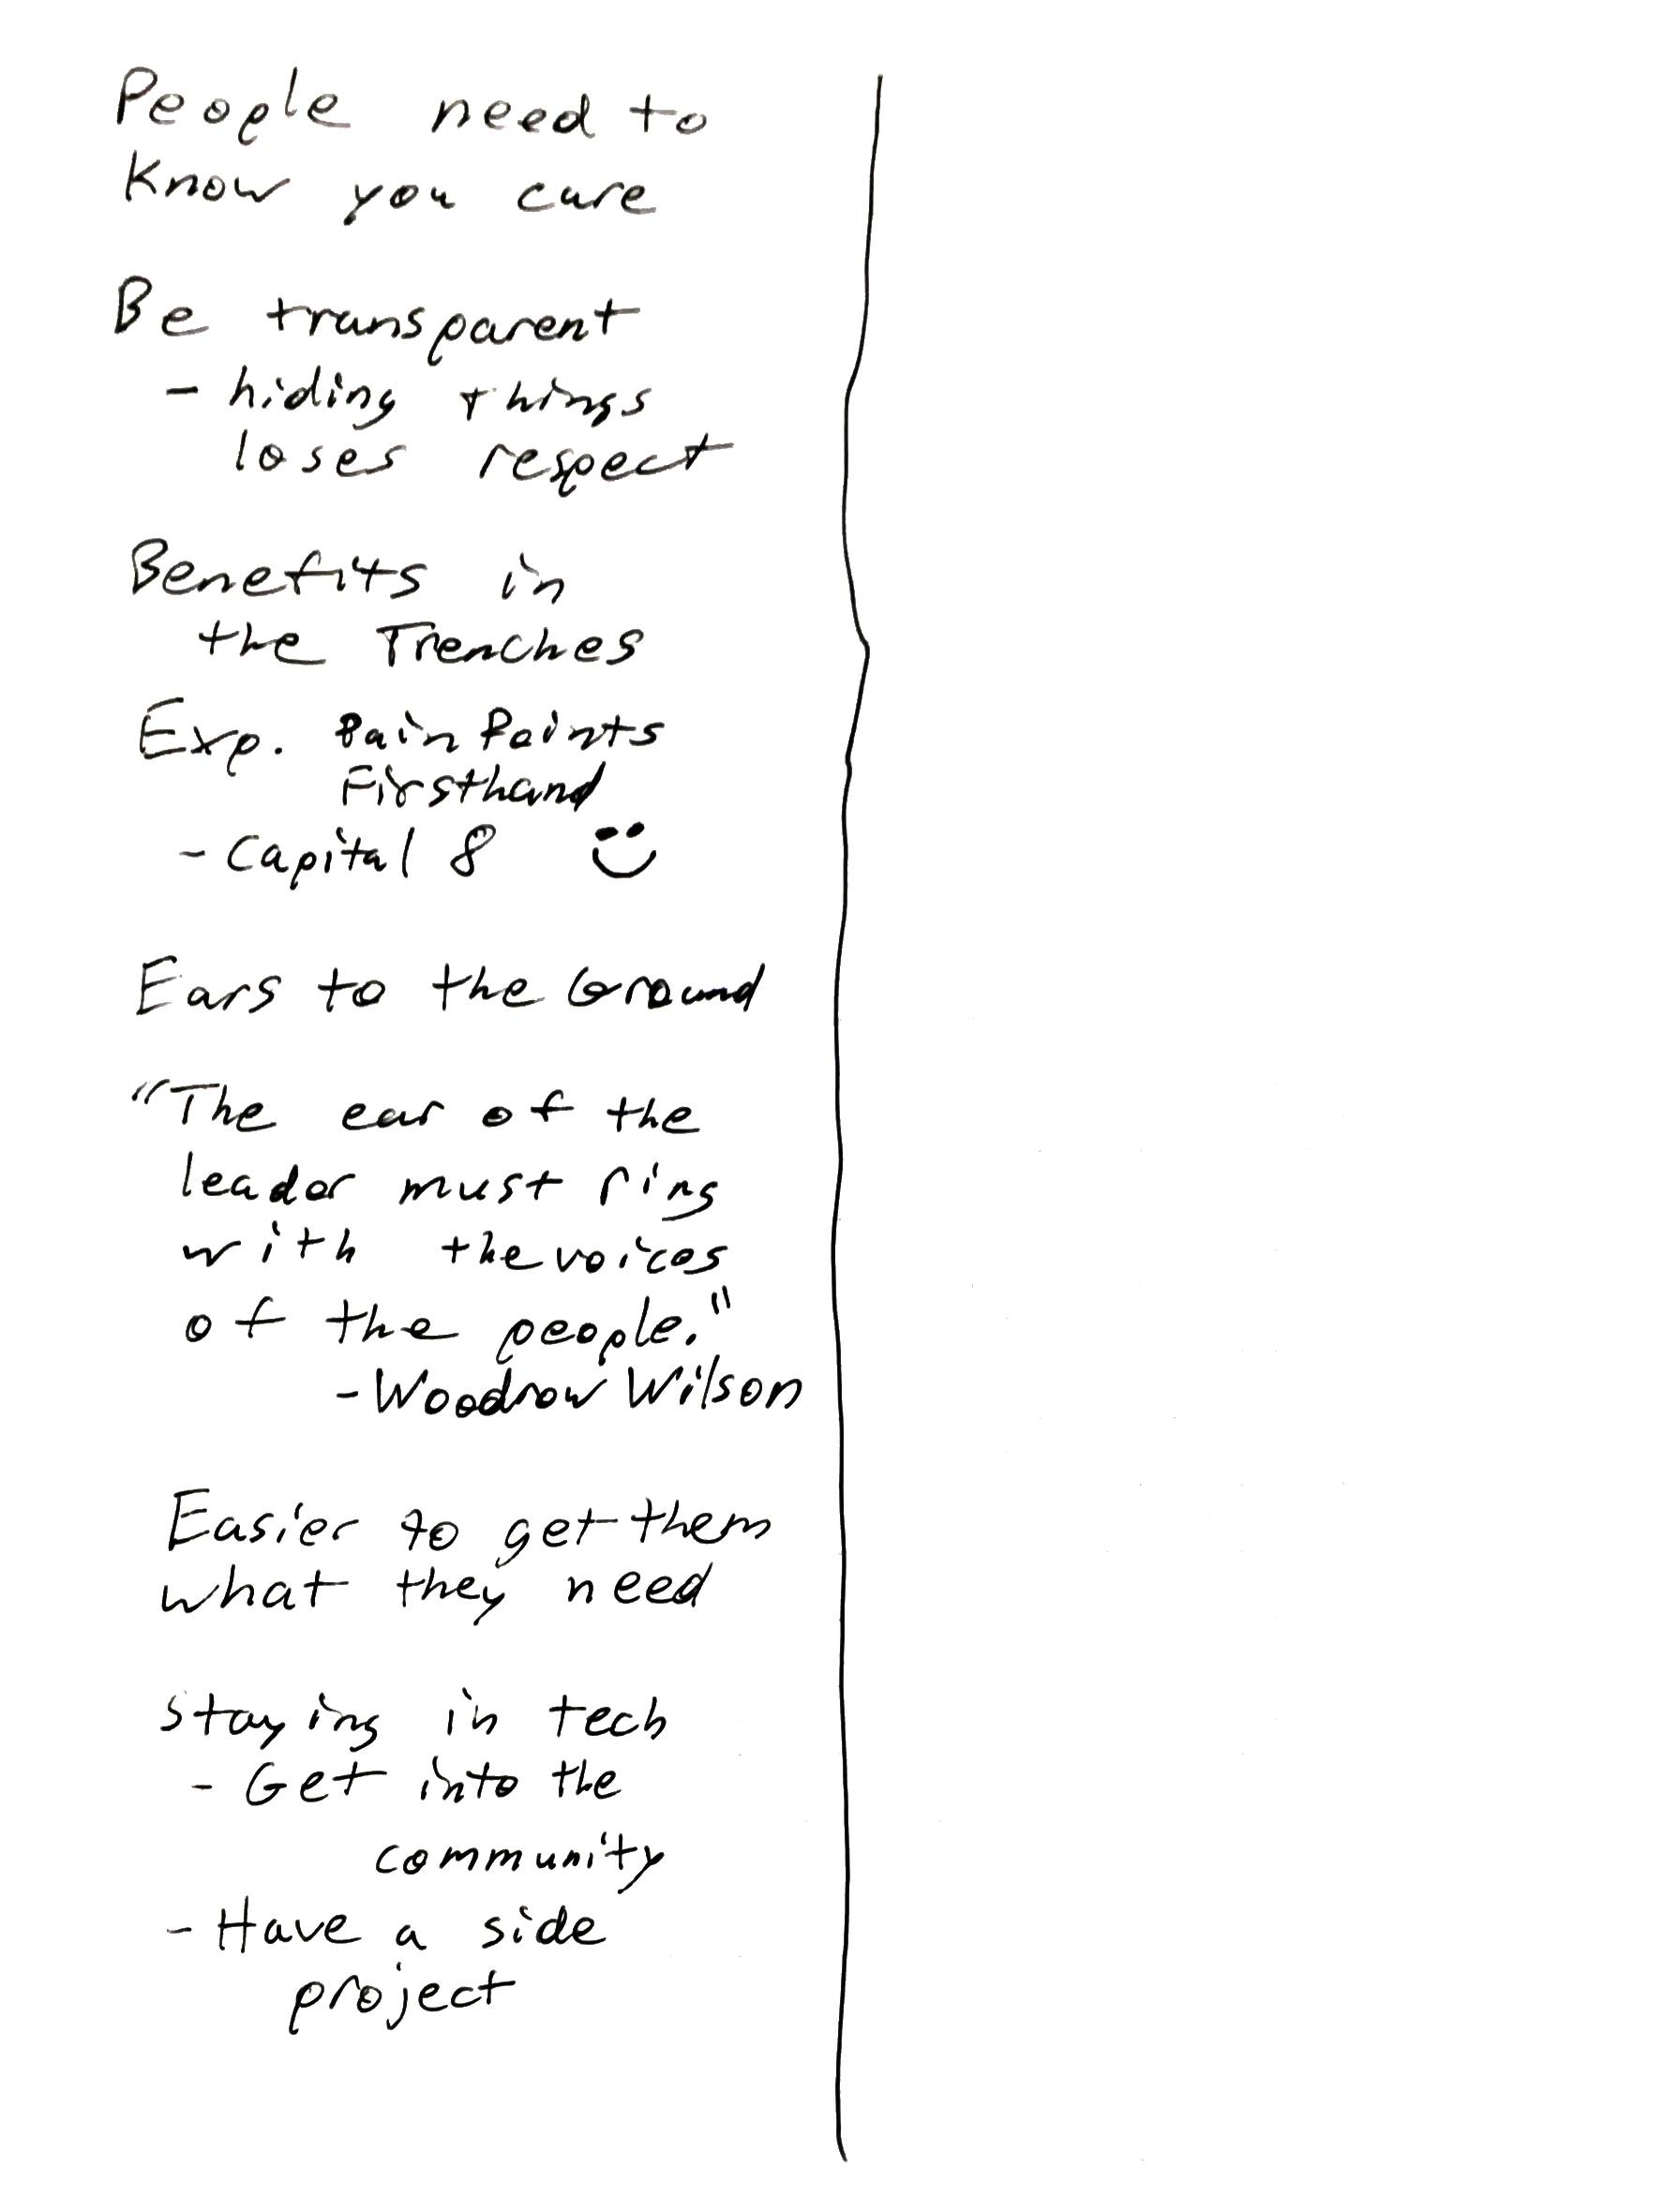 People need to
Know you care
Be transparent
- hiding things
loses respect
Benefits in
the Trenches
Exp. Pain Points
Firsthand
- Capital 8
Ears to the Ground
"The ear of the
leader must ring
with the voices
of the people."
- Woodrow Wilson
Easier to get them
what they need
Staying in tech
- Get into the
community
- Have a side
project